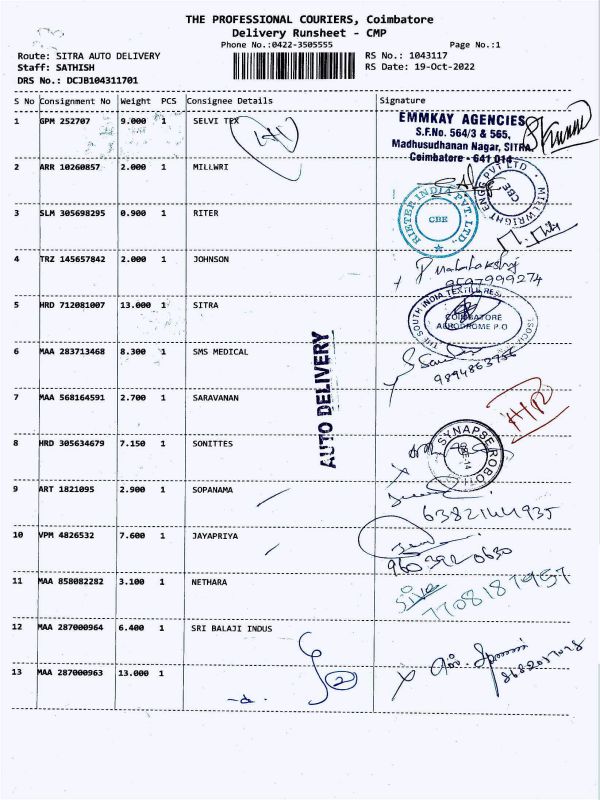 THE PROFESSIONAL COURIERS, Coimbatore
Delivery Runsheet - CMP
Phone No.:0422-3505555
Page No.:1
Route: SITRA AUTO DELIVERY
RS No.: 1043117
Staff: SATHISH
RS Date: 19-Oct-2022
DRS No.: DCJB104311701
S No Consignment No Weight PCS Consignee Details Signature
1 GPM 252707 9.000 1 SELVI TEX
EMMKAY AGENCIES
S.F.No. 564/3 & 565,
Madhusudhanan Nagar, SITRA,
Coimbatore - 641 014
2 ARR 10260857 2.000 1 MILLWRI
MILLWRIGHT ENGG PVT LTD
CBE
3 SLM 305698295 0.900 1 RITER
RIETER INDIA PVT. LTD.,
CBE
4 TRZ 145657842 2.000 1 JOHNSON
9597999274
5 HRD 712081007 13.000 1 SITRA
THE SOUTH INDIA TEXTILE RES
COIMBATORE
AERODROME P.O
6 MAA 283713468 8.300 1 SMS MEDICAL
9894863756
AUTO DELIVERY
7 MAA 568164591 2.700 1 SARAVAN
8 HRD 305634679 7.150 1 SONITTES
SYNAPSE ROBOTI
9 ART 1821095 2.900 1 SOPANAMA
6382144935
10 VPM 4826532 7.600 1 JAYAPRIYA
9603920630
11 MAA 858082282 3.100 1 NETHARA
Siva
7708187957
12 MAA 287000964 6.400 1 SRI BALAJI INDUS
13 MAA 287000963 13.000 1
2